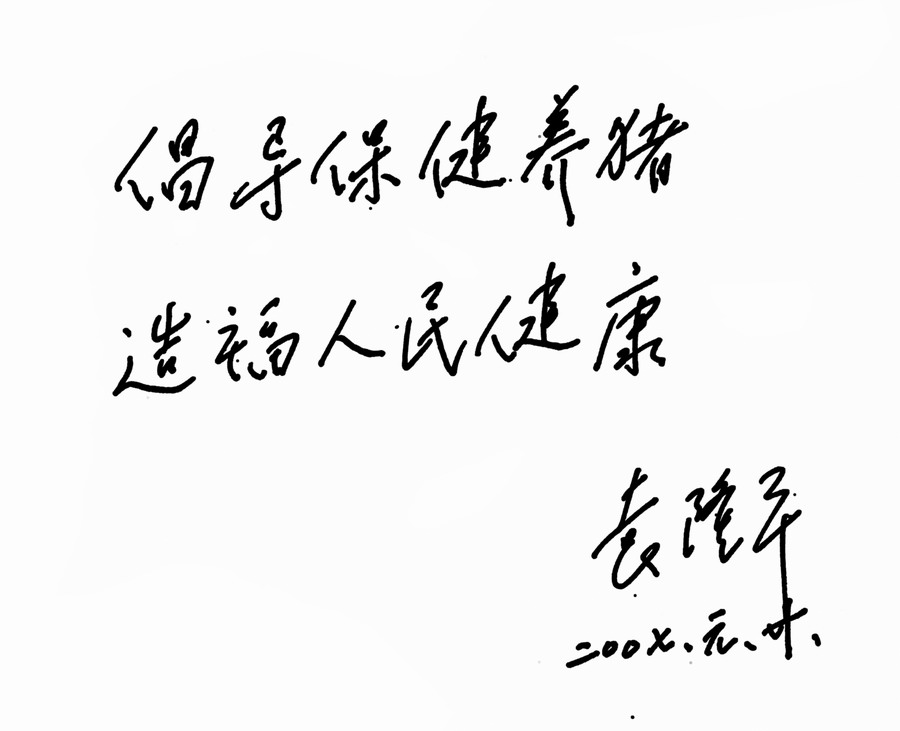 倡导保健养猪
造福人民健康
袁隆平
二〇〇七.元.廿.